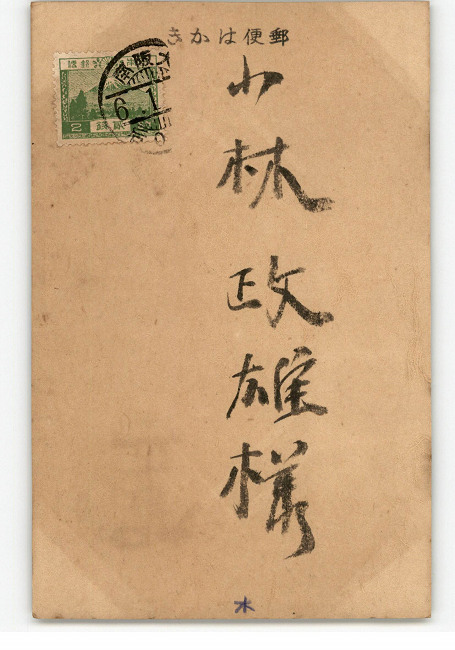 郵便はかき
小林政雄様
2
6. 1
水